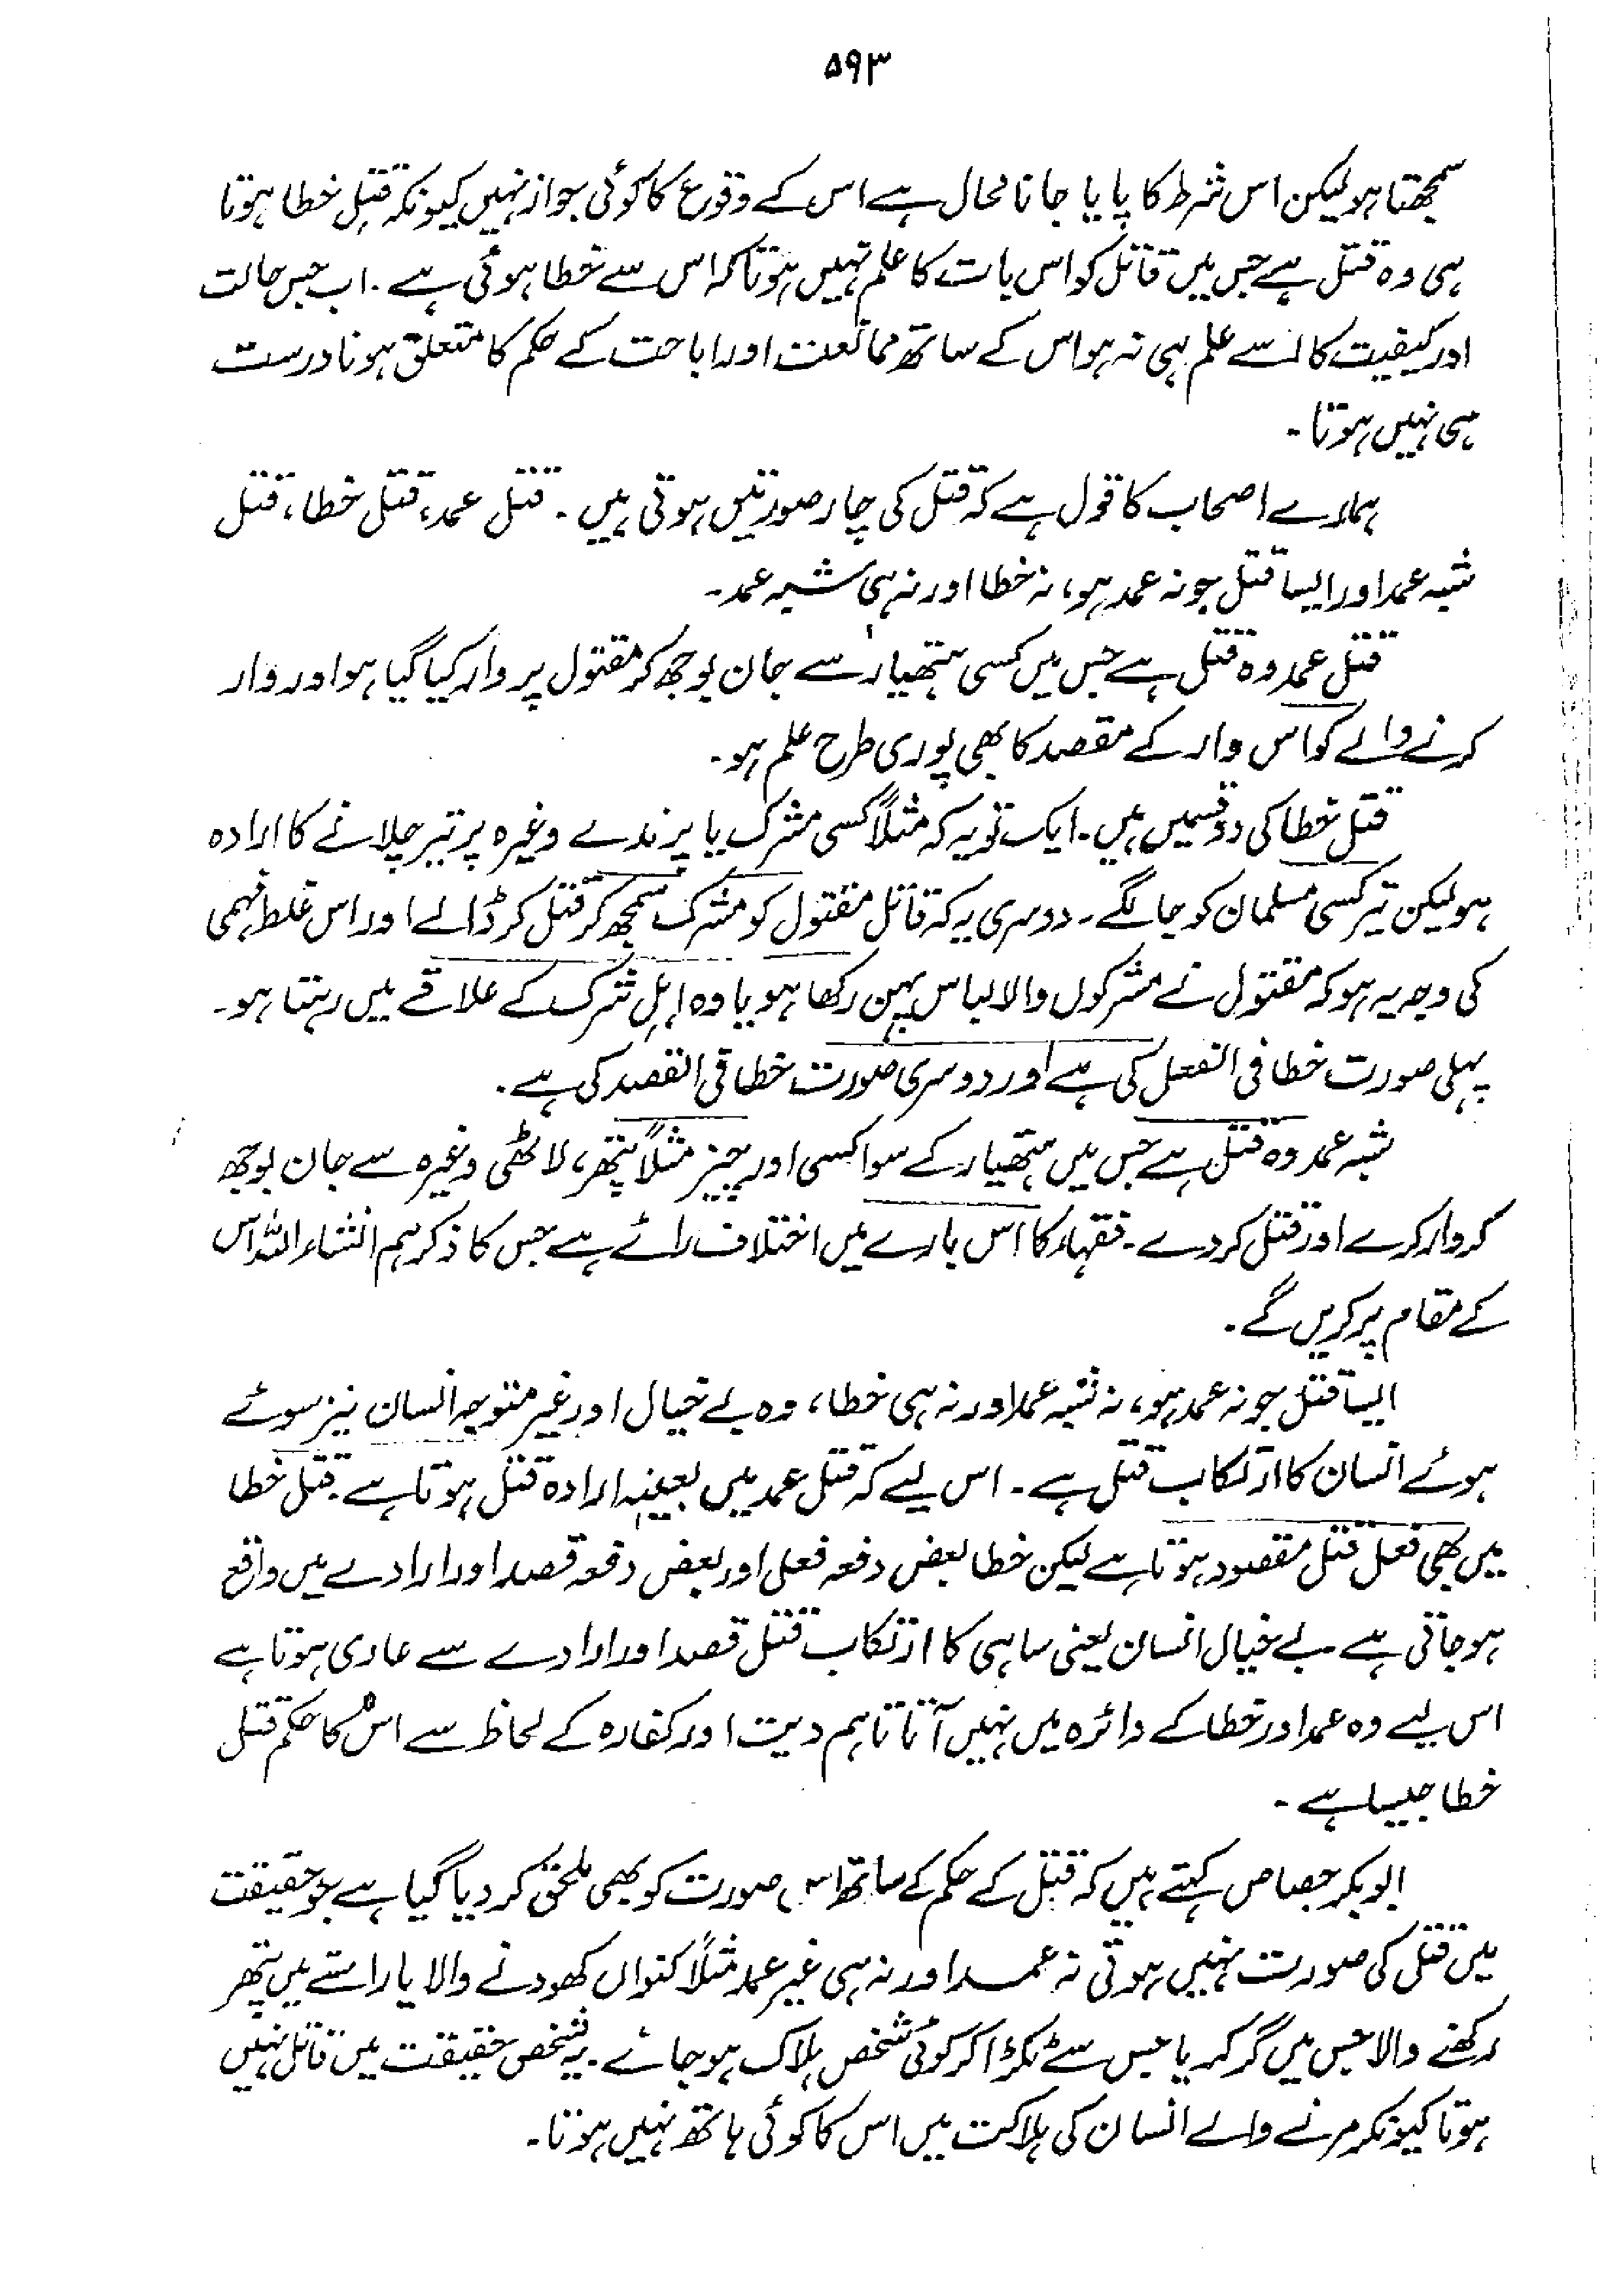 ۵۹۳
سمجھتا ہو لیکن اس شرط کا پایا جانا محال ہے اس کے وقوع کا کوئی جواز نہیں کیونکہ قتل خطا ہوتا
ہی وہ قتل ہے جس میں قاتل کو اس بات کا علم نہیں ہوتا کہ اس سے خطا ہوئی ہے۔ اب جس حالت
اور کیفیت کا اسے علم ہی نہ ہو اس کے ساتھ ممانعت اور اباحت کے حکم کا متعلق ہونا درست
ہی نہیں ہوتا۔
ہمارے اصحاب کا قول ہے کہ قتل کی چار صورتیں ہوتی ہیں۔ قتل عمد، قتل خطا، قتل
شبہ عمد اور ایسا قتل جو نہ عمد ہو، نہ خطا اور نہ ہی شبہ عمد۔
قتل عمد وہ قتل ہے جس میں کسی ہتھیار سے جان بوجھ کر مقتول پر وار کیا گیا ہو اور وار
کرنے والے کو اس وار کے مقصد کا بھی پوری طرح علم ہو۔
قتل خطا کی دو قسمیں ہیں۔ ایک تو یہ کہ مثلاً کسی مشرک یا پرندے وغیرہ پر تیر چلانے کا ارادہ
ہو لیکن تیر کسی مسلمان کو جا لگے۔ دوسری یہ کہ قاتل مقتول کو مشرک سمجھ کر قتل کر ڈالے اور اس غلط فہمی
کی وجہ یہ ہو کہ مقتول نے مشرکوں والا لباس پہن رکھا ہو یا وہ اہلِ شرک کے علاقے میں رہتا ہو۔
پہلی صورت خطا فی الفعل کی ہے اور دوسری صورت خطا فی القصد کی ہے۔
شبہ عمد وہ قتل ہے جس میں ہتھیار کے سوا کسی اور چیز مثلاً پتھر، لاٹھی وغیرہ سے جان بوجھ
کر وار کرے اور قتل کر دے۔ فقہاء کا اس بارے میں اختلاف رائے ہے جس کا ذکر ہم انشاء اللہ اس
کے مقام پر کریں گے۔
ایسا قتل جو نہ عمد ہو، نہ شبہ عمد اور نہ ہی خطا، وہ بے خیال اور غیر متوجہ انسان نیز سوئے
ہوئے انسان کا ارتکاب قتل ہے۔ اس لیے کہ قتل عمد میں بعینہٖ ارادہ قتل ہوتا ہے۔ قتل خطا
میں بھی فعل قتل مقصود ہوتا ہے لیکن خطا بعض دفعہ فعل اور بعض دفعہ قصد اور ارادے میں واقع
ہو جاتی ہے۔ بے خیال انسان یعنی ساہی کا ارتکاب قتل قصد اور ارادے سے عاری ہوتا ہے
اس لیے وہ عمد اور خطا کے دائرہ میں نہیں آتا تاہم دیت اور کفارہ کے لحاظ سے اس کا حکم قتل
خطا جیسا ہے۔
ابوبکر جصاص کہتے ہیں کہ قتل کے حکم کے ساتھ اس صورت کو بھی ملحق کر دیا گیا ہے جو حقیقت
میں قتل کی صورت نہیں ہوتی نہ عمد اور نہ ہی غیر عمد مثلاً کنواں کھودنے والا یا راستے میں پتھر
رکھنے والا جس میں گر کر یا جس سے ٹکرا کر کوئی شخص ہلاک ہو جائے۔ یہ شخص حقیقت میں قاتل نہیں
ہوتا کیونکہ مرنے والے انسان کی ہلاکت میں اس کا کوئی ہاتھ نہیں ہوتا۔